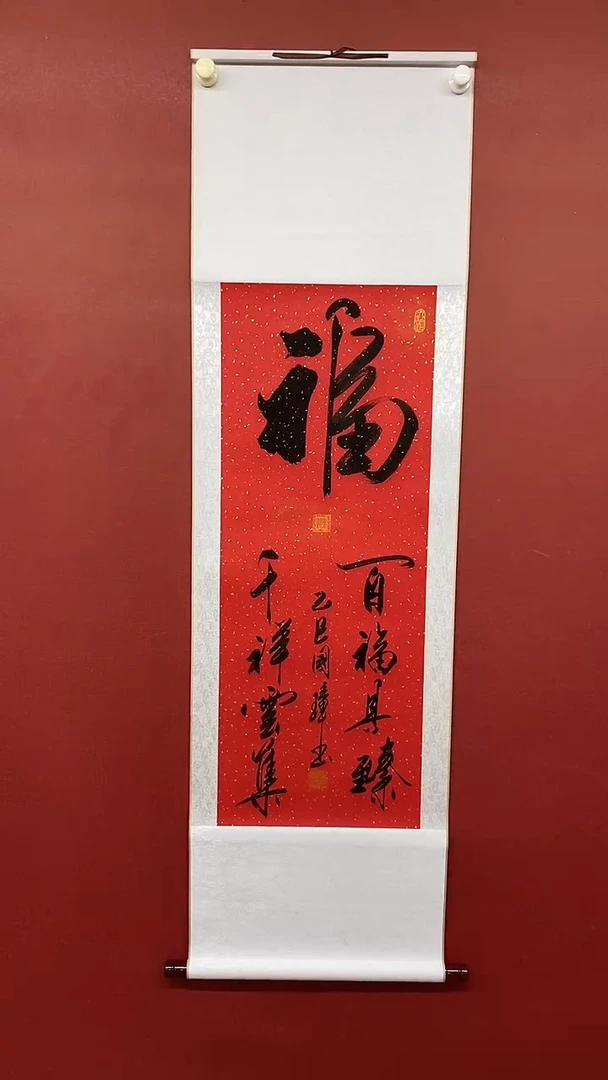 福
百福具臻
乙巳國璋书
千祥雲集